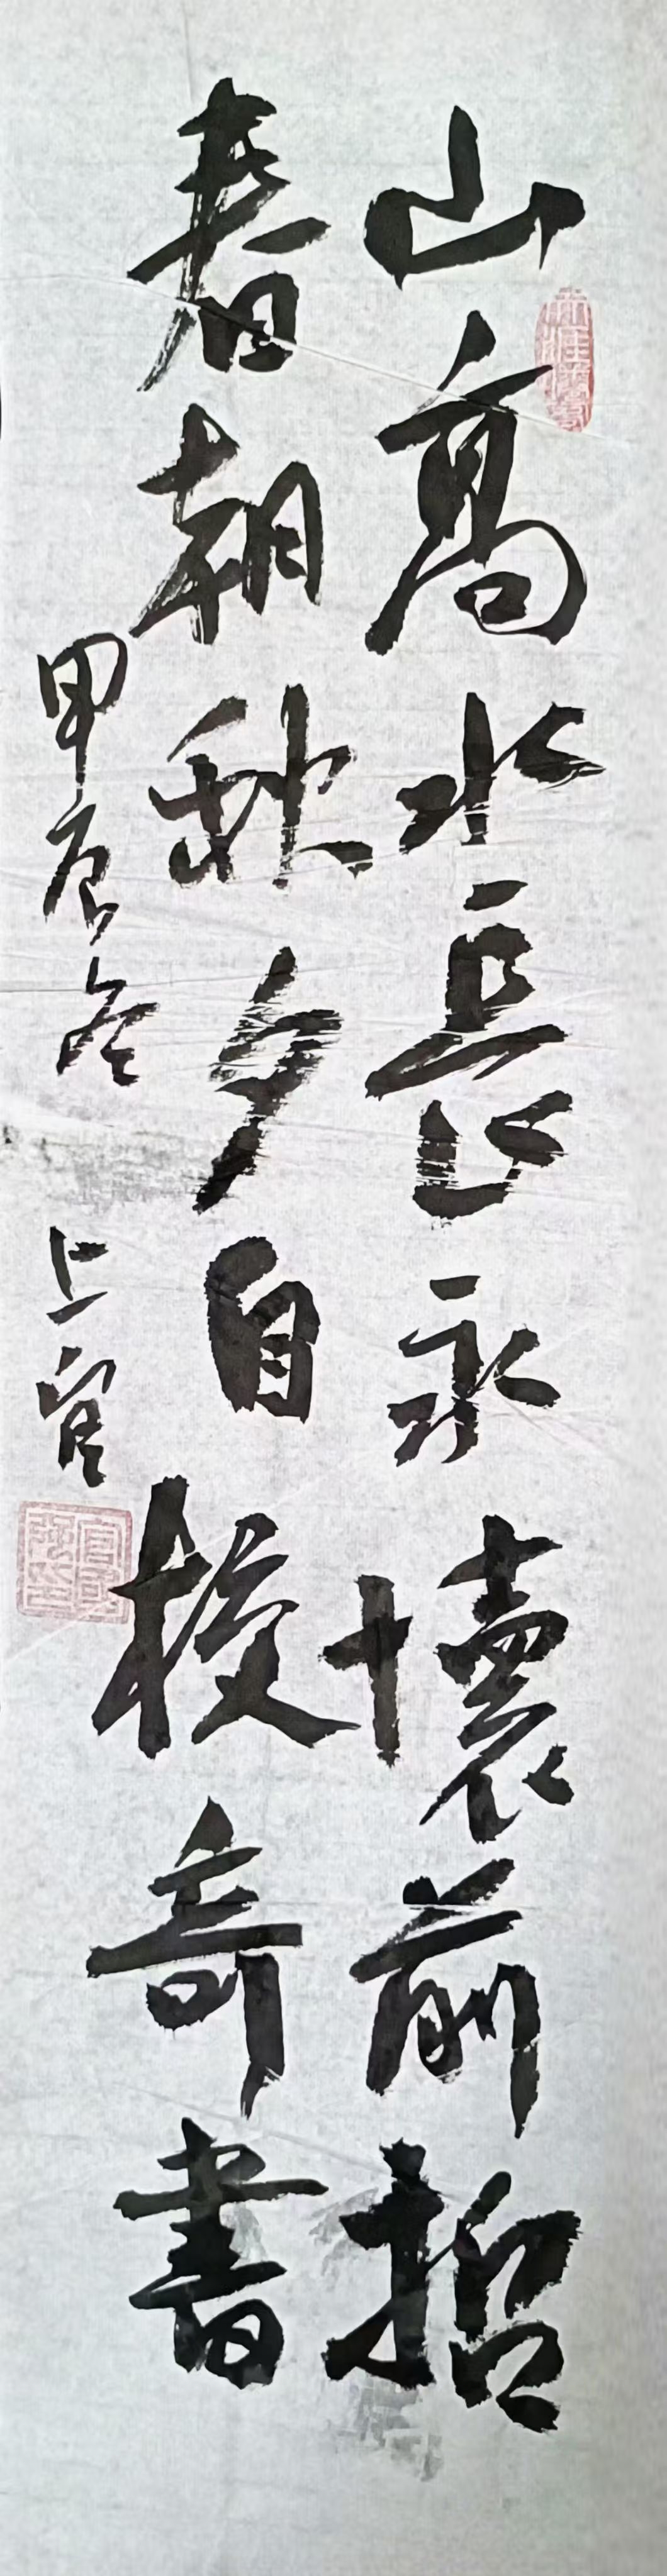 山高水長永懷前哲
春朝秋夕自校奇書
甲辰冬 上官